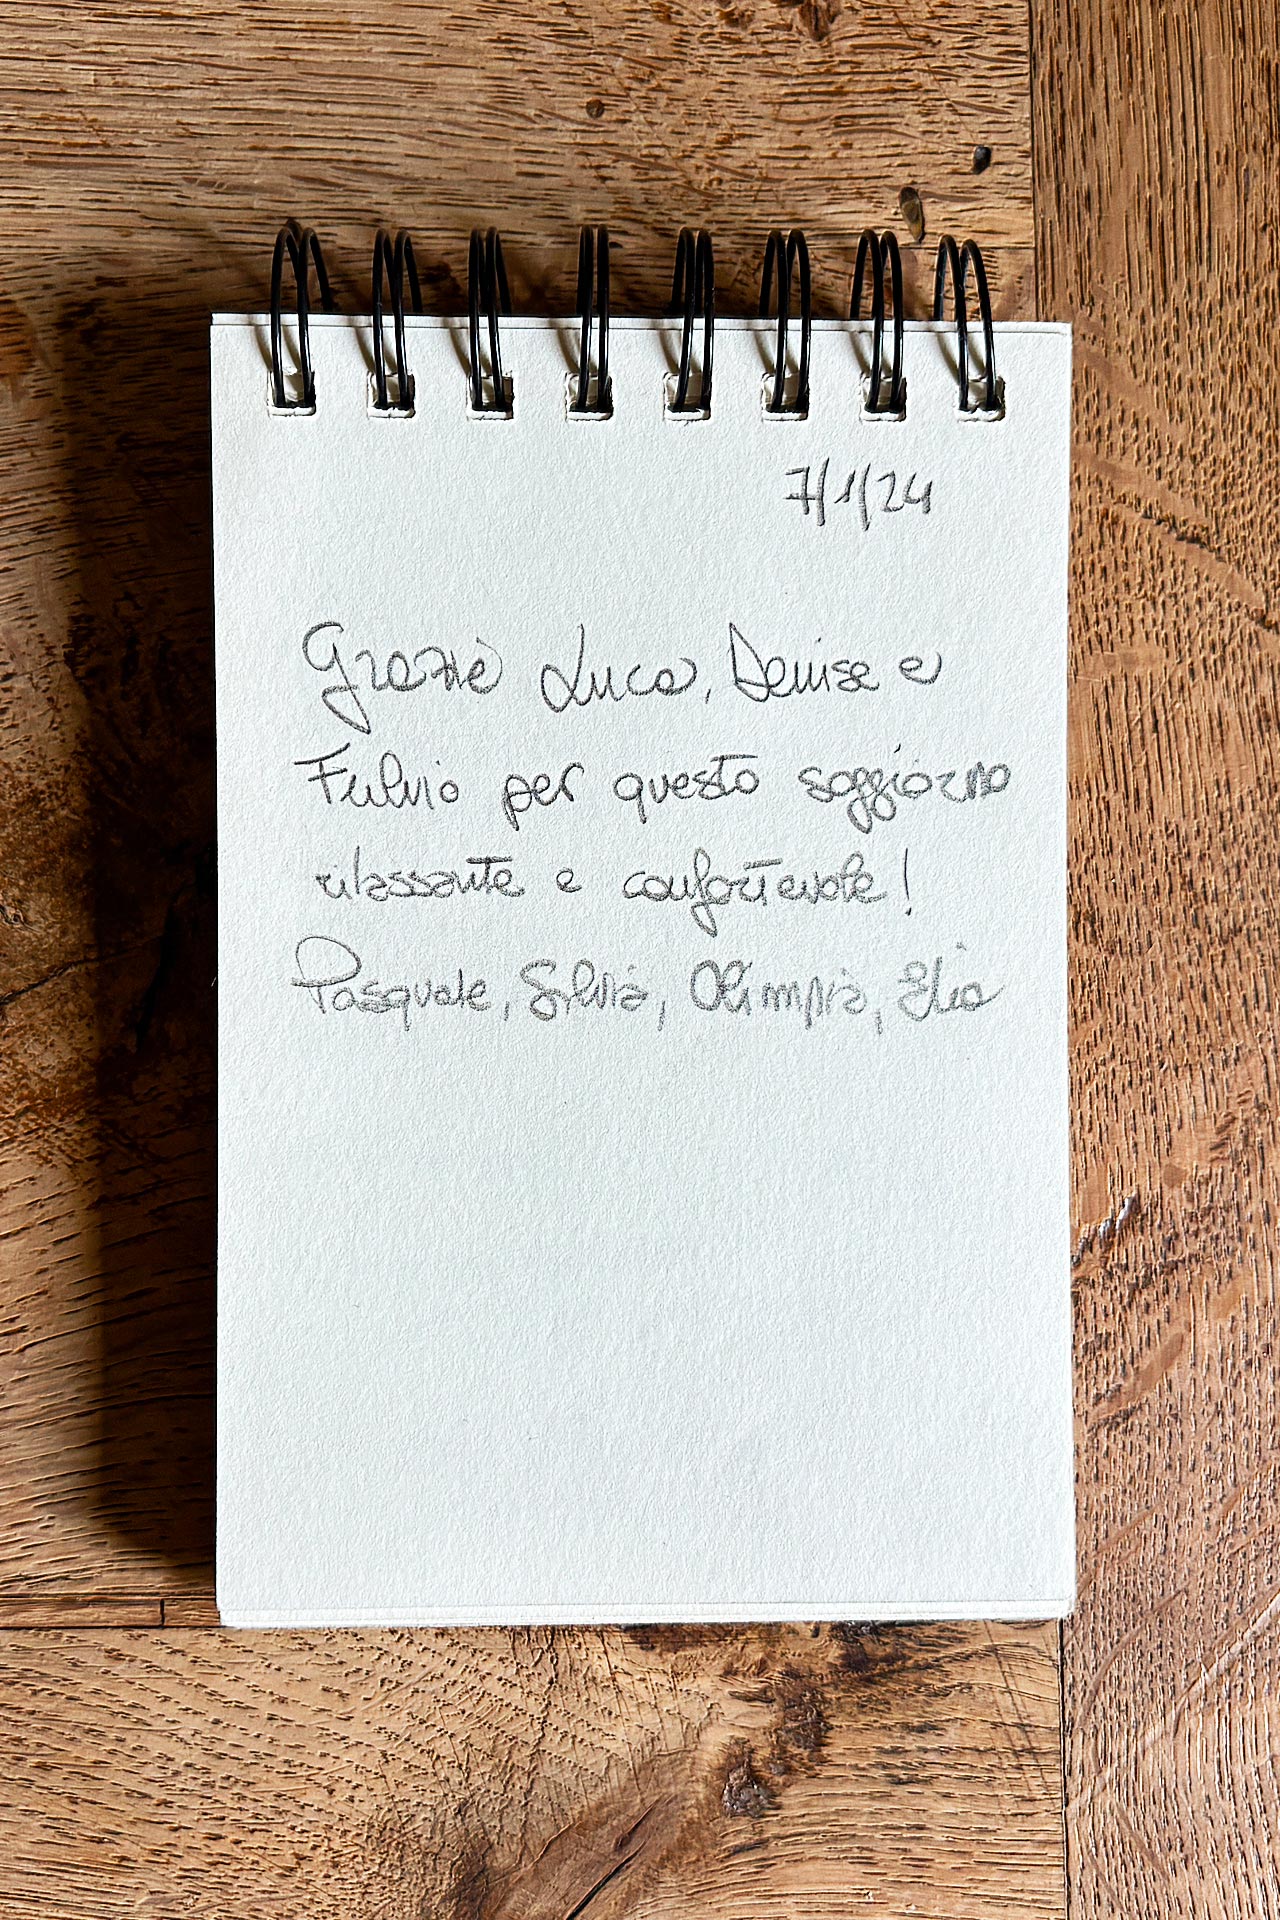 7/1/24
Grazie Luca, Denise e
Fulvio per questo soggiorno
rilassante e confortevole!
Pasquale, Silvia, Olimpia, Elia